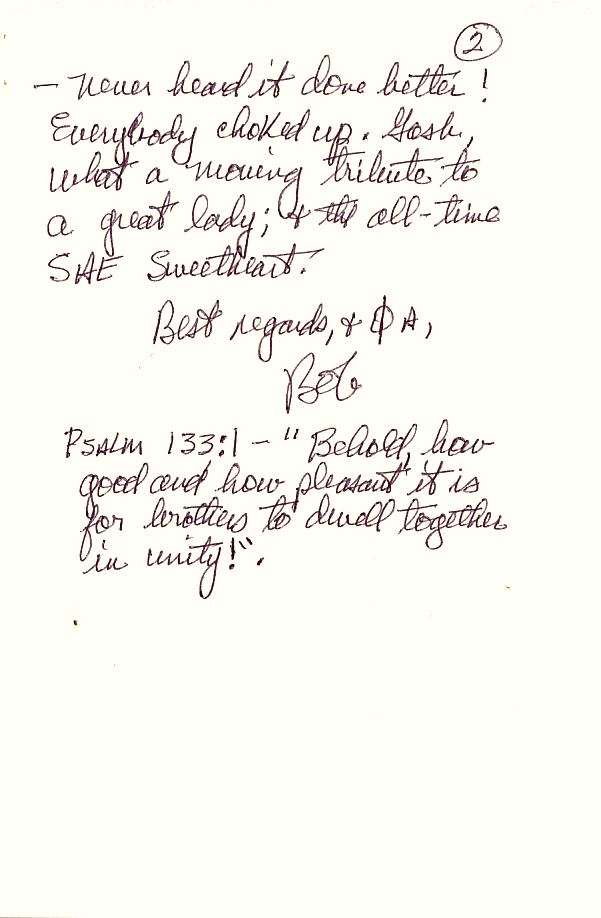 2
- Never heard it done better!
Everybody choked up. Gosh,
what a moving tribute to
a great lady; & the all-time
SAE Sweetheart.
Best regards, & ΦA,
Bob
PSALM 133:1 - "Behold, how
good and how pleasant it is
for brothers to dwell together
in unity!".